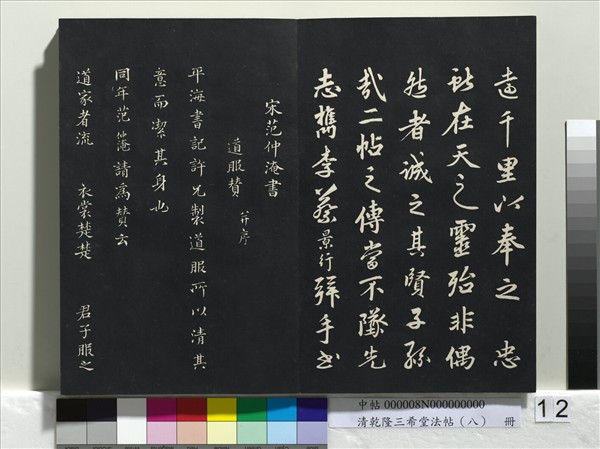 遠千里以奉之 忠
獻在天之靈殆非偶
然者誠之其賢子孫
哉二帖之傳當不墜先
志檇李蔡景行拜手書
宋范仲淹書
道服贊 并序
平海書記許兄製道服所以清其
意而潔其身也
同年范仲淹請為贊云
道家者流 衣裳楚楚 君子服之
中帖 000008N000000000
清乾隆三希堂法帖（八） 冊
12